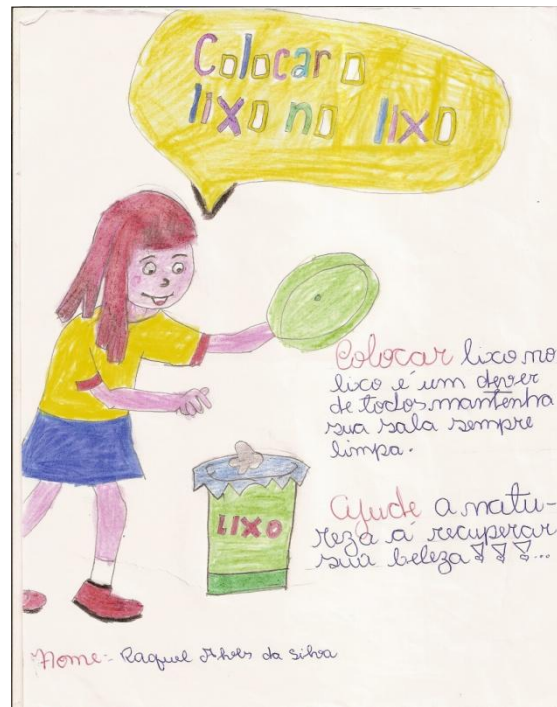 Colocar o
lixo no lixo
Colocar lixo no
lixo é um dever
de todos mantenha
sua sala sempre
limpa.
LIXO
Ajude a natu-
reza a recuperar
sua beleza!!!...
Nome:- Raquel da Silva